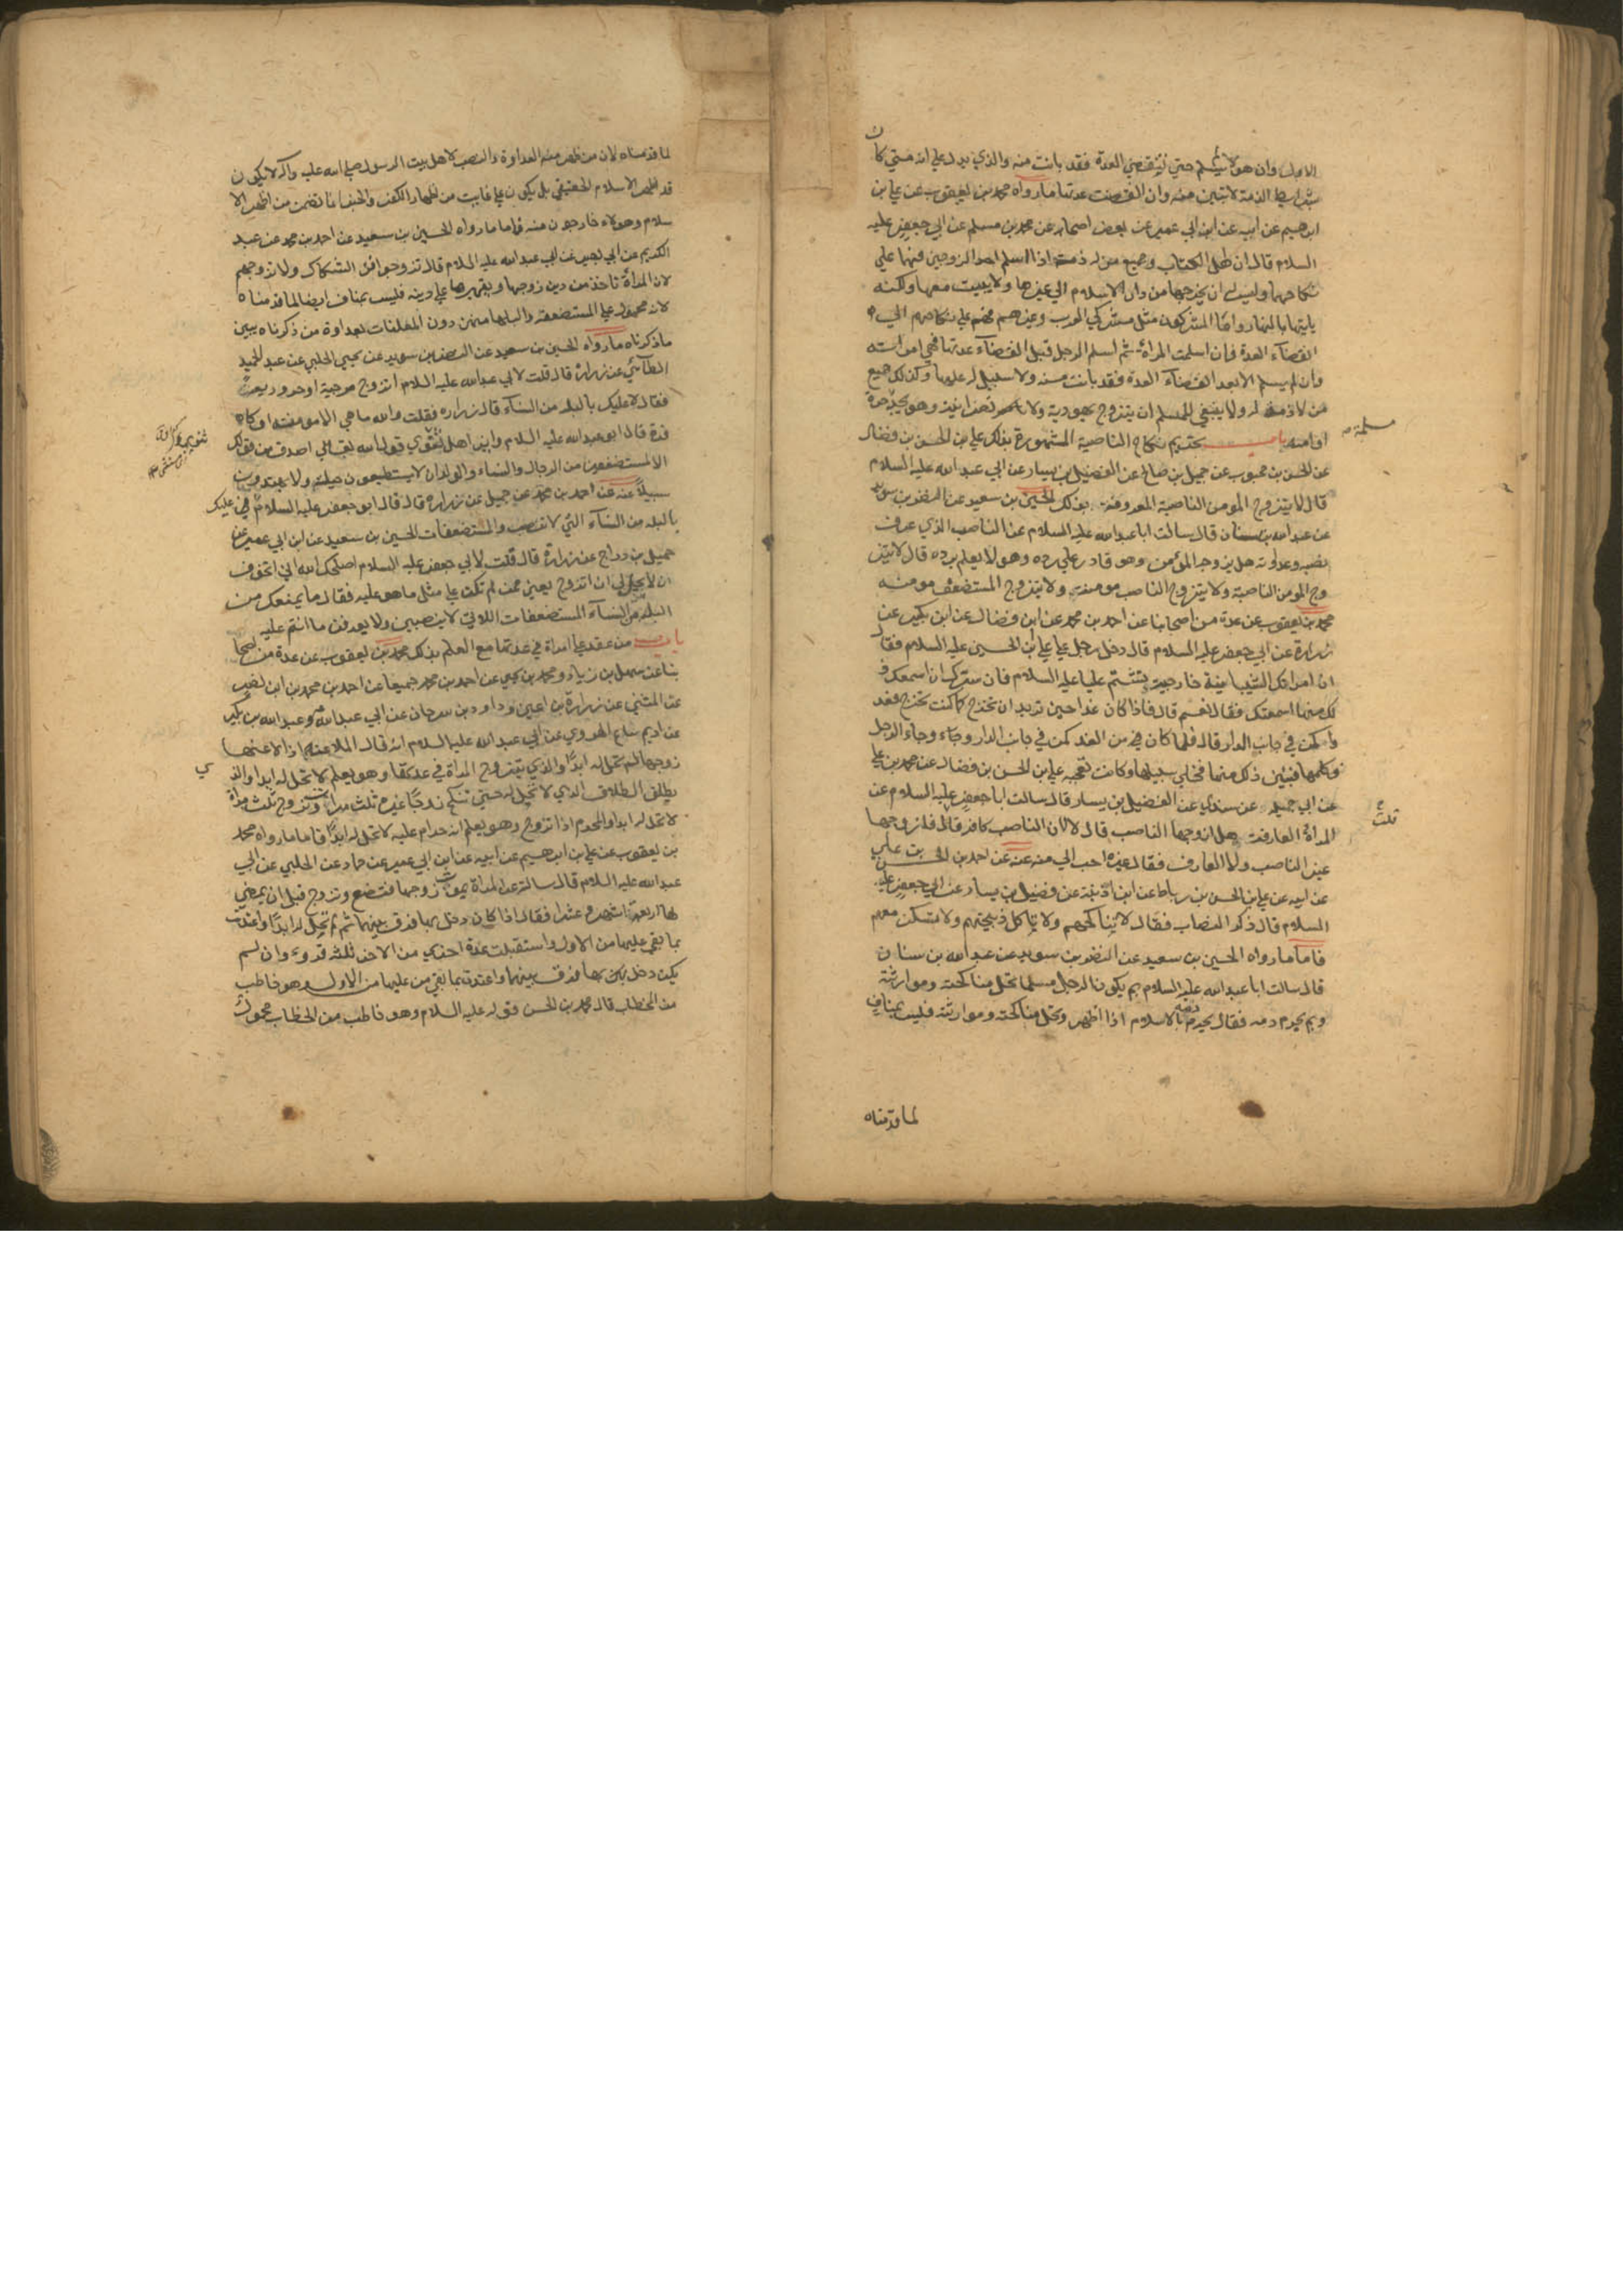 الاول وان هو لا يسلم حتي تنقضي العدة فقد بانت منه والذي يدل علي انه متي كان
بشرايط الذمة لا تبين منه وان انقضت عدتها ما رواه محمد بن يعقوب عن علي بن
ابرهيم عن ابيه عن ابن ابي عمير عن بعض اصحابه عن محمد بن مسلم عن ابي جعفر عليه
السلام قال ان اهل الكتاب وجميع من له ذمة اذا اسلم احد الزوجين فهما علي
نكاحهما وليس له ان يخرجها من دار الاسلام الي غيرها ولا يبيت معها ولكنه
ياتيها بالنهار واما المشركون مثل مشركي العرب وغيرهم فهم علي نكاحهم الي
انقضاء العدة فان اسلمت المراة ثم اسلم الرجل قبل انقضاء عدتها فهي امراته
وان لم يسلم الا بعد انقضاء العدة فقد بانت منه ولا سبيل له عليها وكذلك جميع
من لا ذمة له ولا ينبغي للمسلم ان يتزوج يهودية ولا نصرانية وهو يجد حرة
مسلمة
او امة باب تحريم نكاح الناصبة المشهورة بذلك علي بن الحسن بن فضال
عن الحسن بن محبوب عن جميل بن صالح عن الفضيل بن يسار عن ابي عبد الله عليه السلام
قال لا يتزوج المومن الناصبة المعروفة بذلك الحسين بن سعيد عن النضر بن سويد
عن عبد الله بن سنان قال سالت ابا عبد الله عليه السلام عن الناصب الذي عرف
نصبه وعداوته هل يزوجه المؤمن وهو قادر علي رده وهو لا يعلم برده قال لا يتز
وج المومن الناصبة ولا يتزوج الناصب مومنة ولا يتزوج المستضعف مومنة
محمد بن يعقوب عن عدة من اصحابنا عن احمد بن محمد عن ابن فضال عن ابن بكير عن
زرارة عن ابي جعفر عليه السلام قال دخل رجل علي علي بن الحسين عليه السلام فقال
ان امراتك الشيبانية خارجية تشتم عليا عليه السلام فان سرك ان اسمعك
ذلك منها اسمعتك فقال نعم قال فاذا كان غدا حين تريد ان تخرج كما كنت تخرج فعد
واكمن في جانب الدار قال فلما كان من الغد كمن في جانب الدار وجاء الرجل
وكلمها فتبين ذلك منها فخلي سبيلها وكانت تعجبه علي بن الحسن بن فضال عن محمد بن علي
عن ابي جميلة عن سندي عن الفضيل بن يسار قال سالت ابا جعفر عليه السلام عن
المراة العارفة هل ازوجها الناصب قال لا لان الناصب كافر قال فازوجها
غير الناصب ولا العارف فقال غيره احب الي منه عنه عن احمد بن الحسن
عن ابيه عن علي بن الحسن بن رباط عن ابن اذينة عن فضيل بن يسار عن ابي جعفر عليه
السلام قال ذكر النصاب فقال لا تناكحهم ولا تاكل ذبيحتهم ولا تسكن معهم
فاما ما رواه الحسين بن سعيد عن النضر بن سويد عن عبد الله بن سنان
قال سالت ابا عبد الله عليه السلام بم يكون الرجل مسلما تحل مناكحته وموارثته
وبم يحرم دمه فقال يحرم دمه بالاسلام اذا اظهر وتحل مناكحته وموارثته فليس بمناف
لما قدمناه
لما قدمناه لان من ظهر منه العداوة والنصب لاهل بيت الرسول صلي الله عليه واله لا يكون
قد اظهر الاسلام الحقيقي بل يكون علي غاية من اظهار الكفر والخبر انما تضمن من اظهر الا
سلام وهولاء خارجون منه فاما ما رواه الحسين بن سعيد عن احمد بن محمد عن عبد
الكريم عن ابي بصير عن ابي عبد الله عليه السلام قال تزوجوا في الشكاك ولا تزوجوهم
لان المراة تاخذ من دين زوجها ويقهرها علي دينه فليس بمناف ايضا لما قدمناه
لانه محمول علي المستضعفة والبلها منهن دون المعلنات بعداوة من ذكرناه يبين
ما ذكرناه ما رواه الحسين بن سعيد عن النضر بن سويد عن يحيي الحلبي عن عبد الحميد
الطائي عن زرارة قال قلت لابي عبد الله عليه السلام اتزوج مرجية او حرورية
فقال لا عليك بالبله من النساء قال زرارة فقلت والله ما هي الا مومنة او كا
فرة قال ابو عبد الله عليه السلام واين اهل ثنوي الله قول الله تعالي اصدق من قولك
الا المستضعفين من الرجال والنساء والولدان لا يستطيعون حيلة ولا يهتدون
سبيلا عنه عن احمد بن محمد عن جميل عن زرارة قال قال ابو جعفر عليه السلام عليك
بالبله من النساء التي لا تنصب والمستضعفات الحسين بن سعيد عن ابن ابي عمير عن
جميل بن دراج عن زرارة قال قلت لابي جعفر عليه السلام اصلحك الله اني اخوف
ان لا يحل لي ان اتزوج يعني ممن لم تكن علي مثل ما هو عليه فقال ما يمنعك من
البله من النساء المستضعفات اللاتي لا ينصبن ولا يعرفن ما انتم عليه
باب من عقد علي امراة في عدتها مع العلم بذلك محمد بن يعقوب عن عدة من اصحا
بنا عن سهل بن زياد ومحمد بن يحيي عن احمد بن محمد جميعا عن احمد بن محمد بن ابي نصر
عن المثني عن زرارة بن اعين وداود بن سرحان عن ابي عبد الله وعبد الله بن بكير
عن اديم بياع الهروي عن ابي عبد الله عليه السلام انه قال الملاعنة اذا لاعنها
زوجها لم تحل له ابدا والذي يتزوج المراة في عدتها وهو يعلم لا تحل له ابدا والذي
يطلق الطلاق الذي لا تحل له حتي تنكح زوجا غيره ثلث مرات وتزوج ثلث مرات
لا تحل له ابدا والمحرم اذا تزوج وهو يعلم انه حرام عليه لا تحل له ابدا فاما ما رواه محمد
بن يعقوب عن علي بن ابرهيم عن ابيه عن ابن ابي عمير عن حماد عن الحلبي عن ابي
عبد الله عليه السلام قال سالته عن المراة يموت زوجها فتضع وتزوج قبل ان يمضي
لها اربعة اشهر وعشرا فقال اذا كان دخل بها فرق بينهما ثم لم تحل له ابدا واعتدت
بما بقي عليها من الاول واستقبلت عدة اخري من الاخر ثلثة قروء وان لم
يكن دخل بها فرق بينهما واعتدت بما بقي من عليها من الاول وهو خاطب
من الخطاب قال محمد بن الحسن قوله عليه السلام وهو خاطب من الخطاب محمول